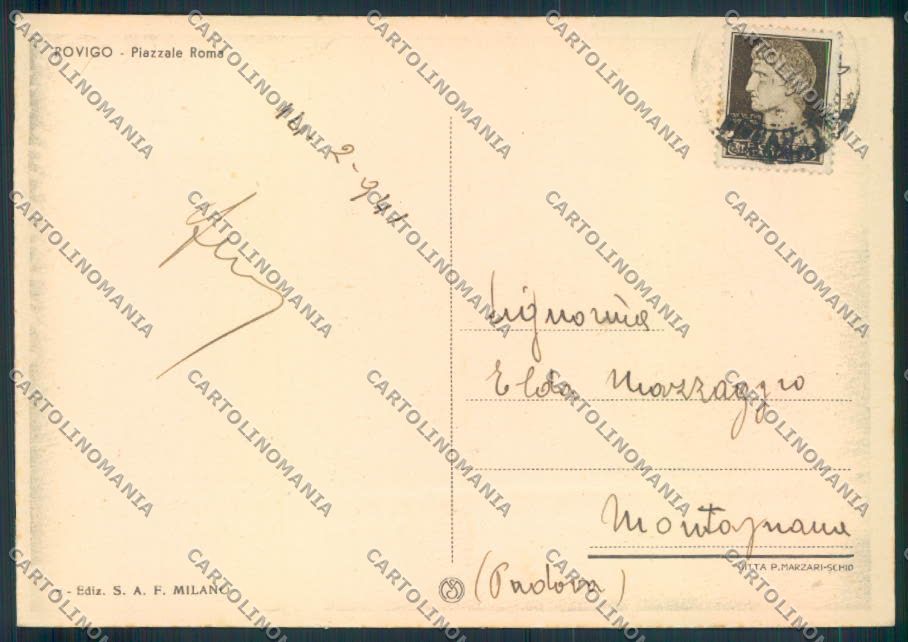 ROVIGO - Piazzale Roma
2-941
Signorina
Elda Mazzaggio
Montagnana
(Padova)
DITTA P. MARZARI-SCHIO
- Ediz. S. A. F. MILANO
CARTOLINOMANIA